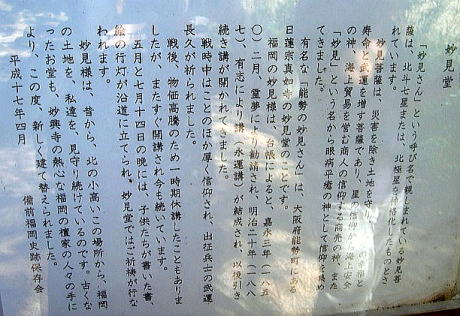 妙見堂
「妙見さん」という呼び名で親しまれている妙見菩
薩は、北斗七星または、北極星を神格化したものとさ
れています。
妙見菩薩は、災害を除き土地を守り、
寿命と武運を増す菩薩であり、星の信仰から
の神、海上貿易を営む商人の信仰する商売の神、また
「妙見」という名から眼病平癒の神として信仰を集め
てきました。
有名な「能勢の妙見さん」は、大阪府能勢町にある
日蓮宗真如寺の妙見堂のことです。
福岡の妙見様は、台帳によると、嘉永三年（一八五
〇）二月、霊夢により勧請され、明治二十年（一八八
七）、有志により講（永運講）が結成され、以後引き
続き講が開かれてきました。
戦時中はことのほか厚く信仰され、出征兵士の武運
長久が祈られました。
戦後、物価高騰のため一時期休講したこともありま
したが、またすぐ開講され今も続いています。
五月と七月十四日の晩には、子供たちが書いた書、
絵の行灯が沿道に立てられ、妙見堂ではご祈祷が行な
われます。
妙見様は、昔から、北の小高いこの場所から、福岡
の土地を、私達を、見守り続けているのです。古くな
ったお堂も、妙興寺の熱心な福岡の檀家の人々の手に
より、この度、新しく建て替えられました。
平成十七年四月
備前福岡史跡保存会